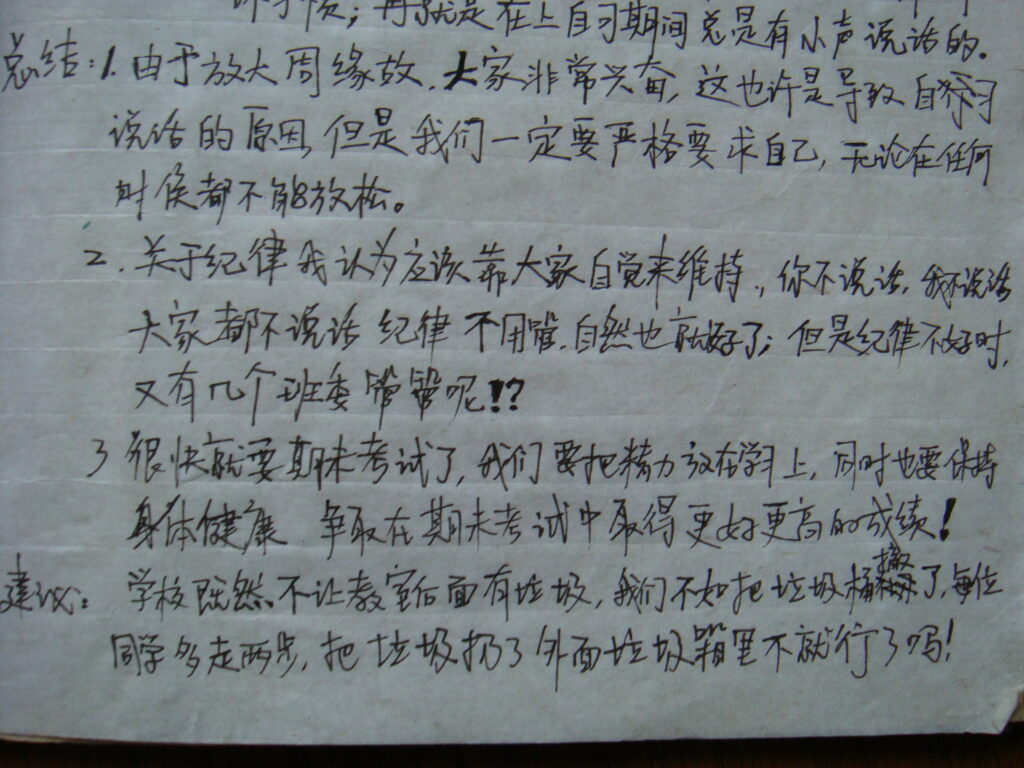 再就是在上自习期间总是有小声说话的。
总结:1. 由于放大周缘故,大家非常兴奋,这也许是导致自习
说话的原因,但是我们一定要严格要求自己,无论在任何
时候都不能放松。
2. 关于纪律我认为应该靠大家自觉来维持,你不说话,我不说话
大家都不说话纪律不用管,自然也就好了;但是纪律不好时,
又有几个班委管管呢!?
3 很快就要期末考试了,我们要把精力放在学习上,同时也要保持
身体健康 争取在期末考试中取得更好更高的成绩!
建议: 学校既然不让教室后面有垃圾,我们不如把垃圾桶撤了,每位
同学多走两步,把垃圾扔了外面垃圾箱里不就行了吗!